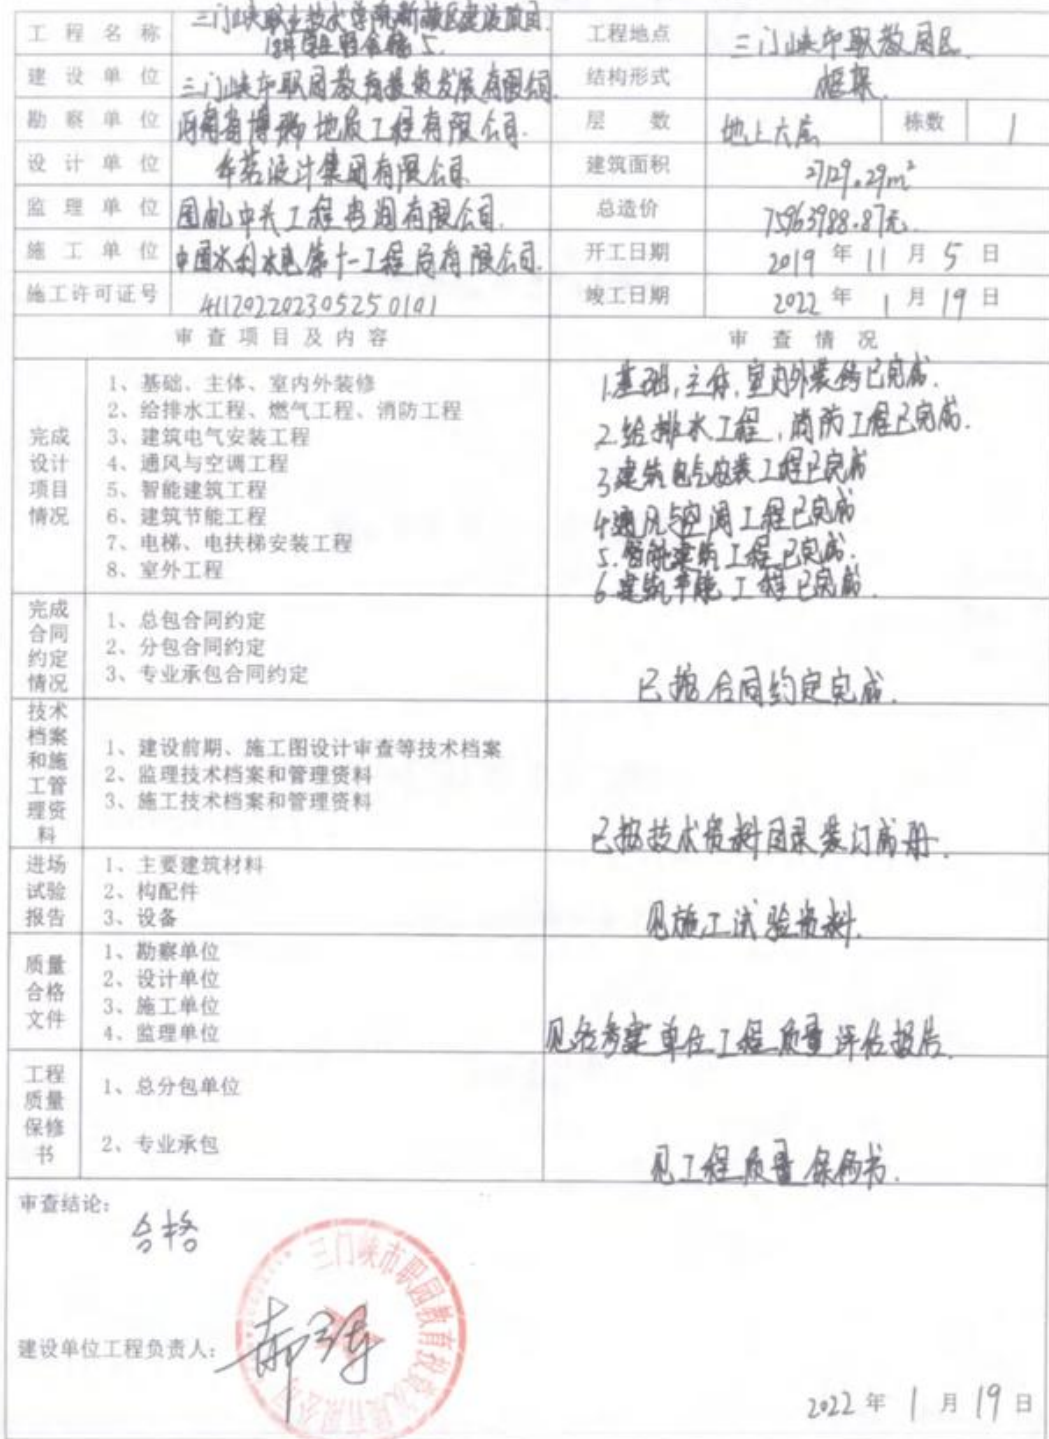 工程名称 三门峡职业技术学院新校区建设项目
18#学生宿舍楼5. 工程地点 三门峡市职教园区.
建设单位 三门峡市职园教育投资发展有限公司. 结构形式 框架.
勘察单位 河南省博瑞地质工程有限公司. 层数 地上六层 栋数 1
设计单位 华茗设计集团有限公司. 建筑面积 27129.29m²
监理单位 国机中兴工程咨询有限公司. 总造价 75963988.87元.
施工单位 中国水利水电第十一工程局有限公司. 开工日期 2019年11月5日
施工许可证号 411202202305250101 竣工日期 2022年1月19日
审查项目及内容 审查情况
完成设计项目情况
1、基础、主体、室内外装修
2、给排水工程、燃气工程、消防工程
3、建筑电气安装工程
4、通风与空调工程
5、智能建筑工程
6、建筑节能工程
7、电梯、电扶梯安装工程
8、室外工程
1.基础,主体,室内外装修已完成.
2.给排水工程,消防工程已完成.
3建筑电气安装工程已完成
4.通风与空调工程已完成
5.智能建筑工程已完成.
6建筑节能工程已完成.
完成合同约定情况
1、总包合同约定
2、分包合同约定
3、专业承包合同约定
已按合同约定完成.
技术档案和施工管理资料
1、建设前期、施工图设计审查等技术档案
2、监理技术档案和管理资料
3、施工技术档案和管理资料
已按技术资料目录装订成册.
进场试验报告
1、主要建筑材料
2、构配件
3、设备
见施工试验资料.
质量合格文件
1、勘察单位
2、设计单位
3、施工单位
4、监理单位
见各参建单位工程质量评估报告.
工程质量保修书
1、总分包单位
2、专业承包
见工程质量保修书.
审查结论:
合格
三门峡市职园教育投资发展有限公司
建设单位工程负责人:
2022年1月19日